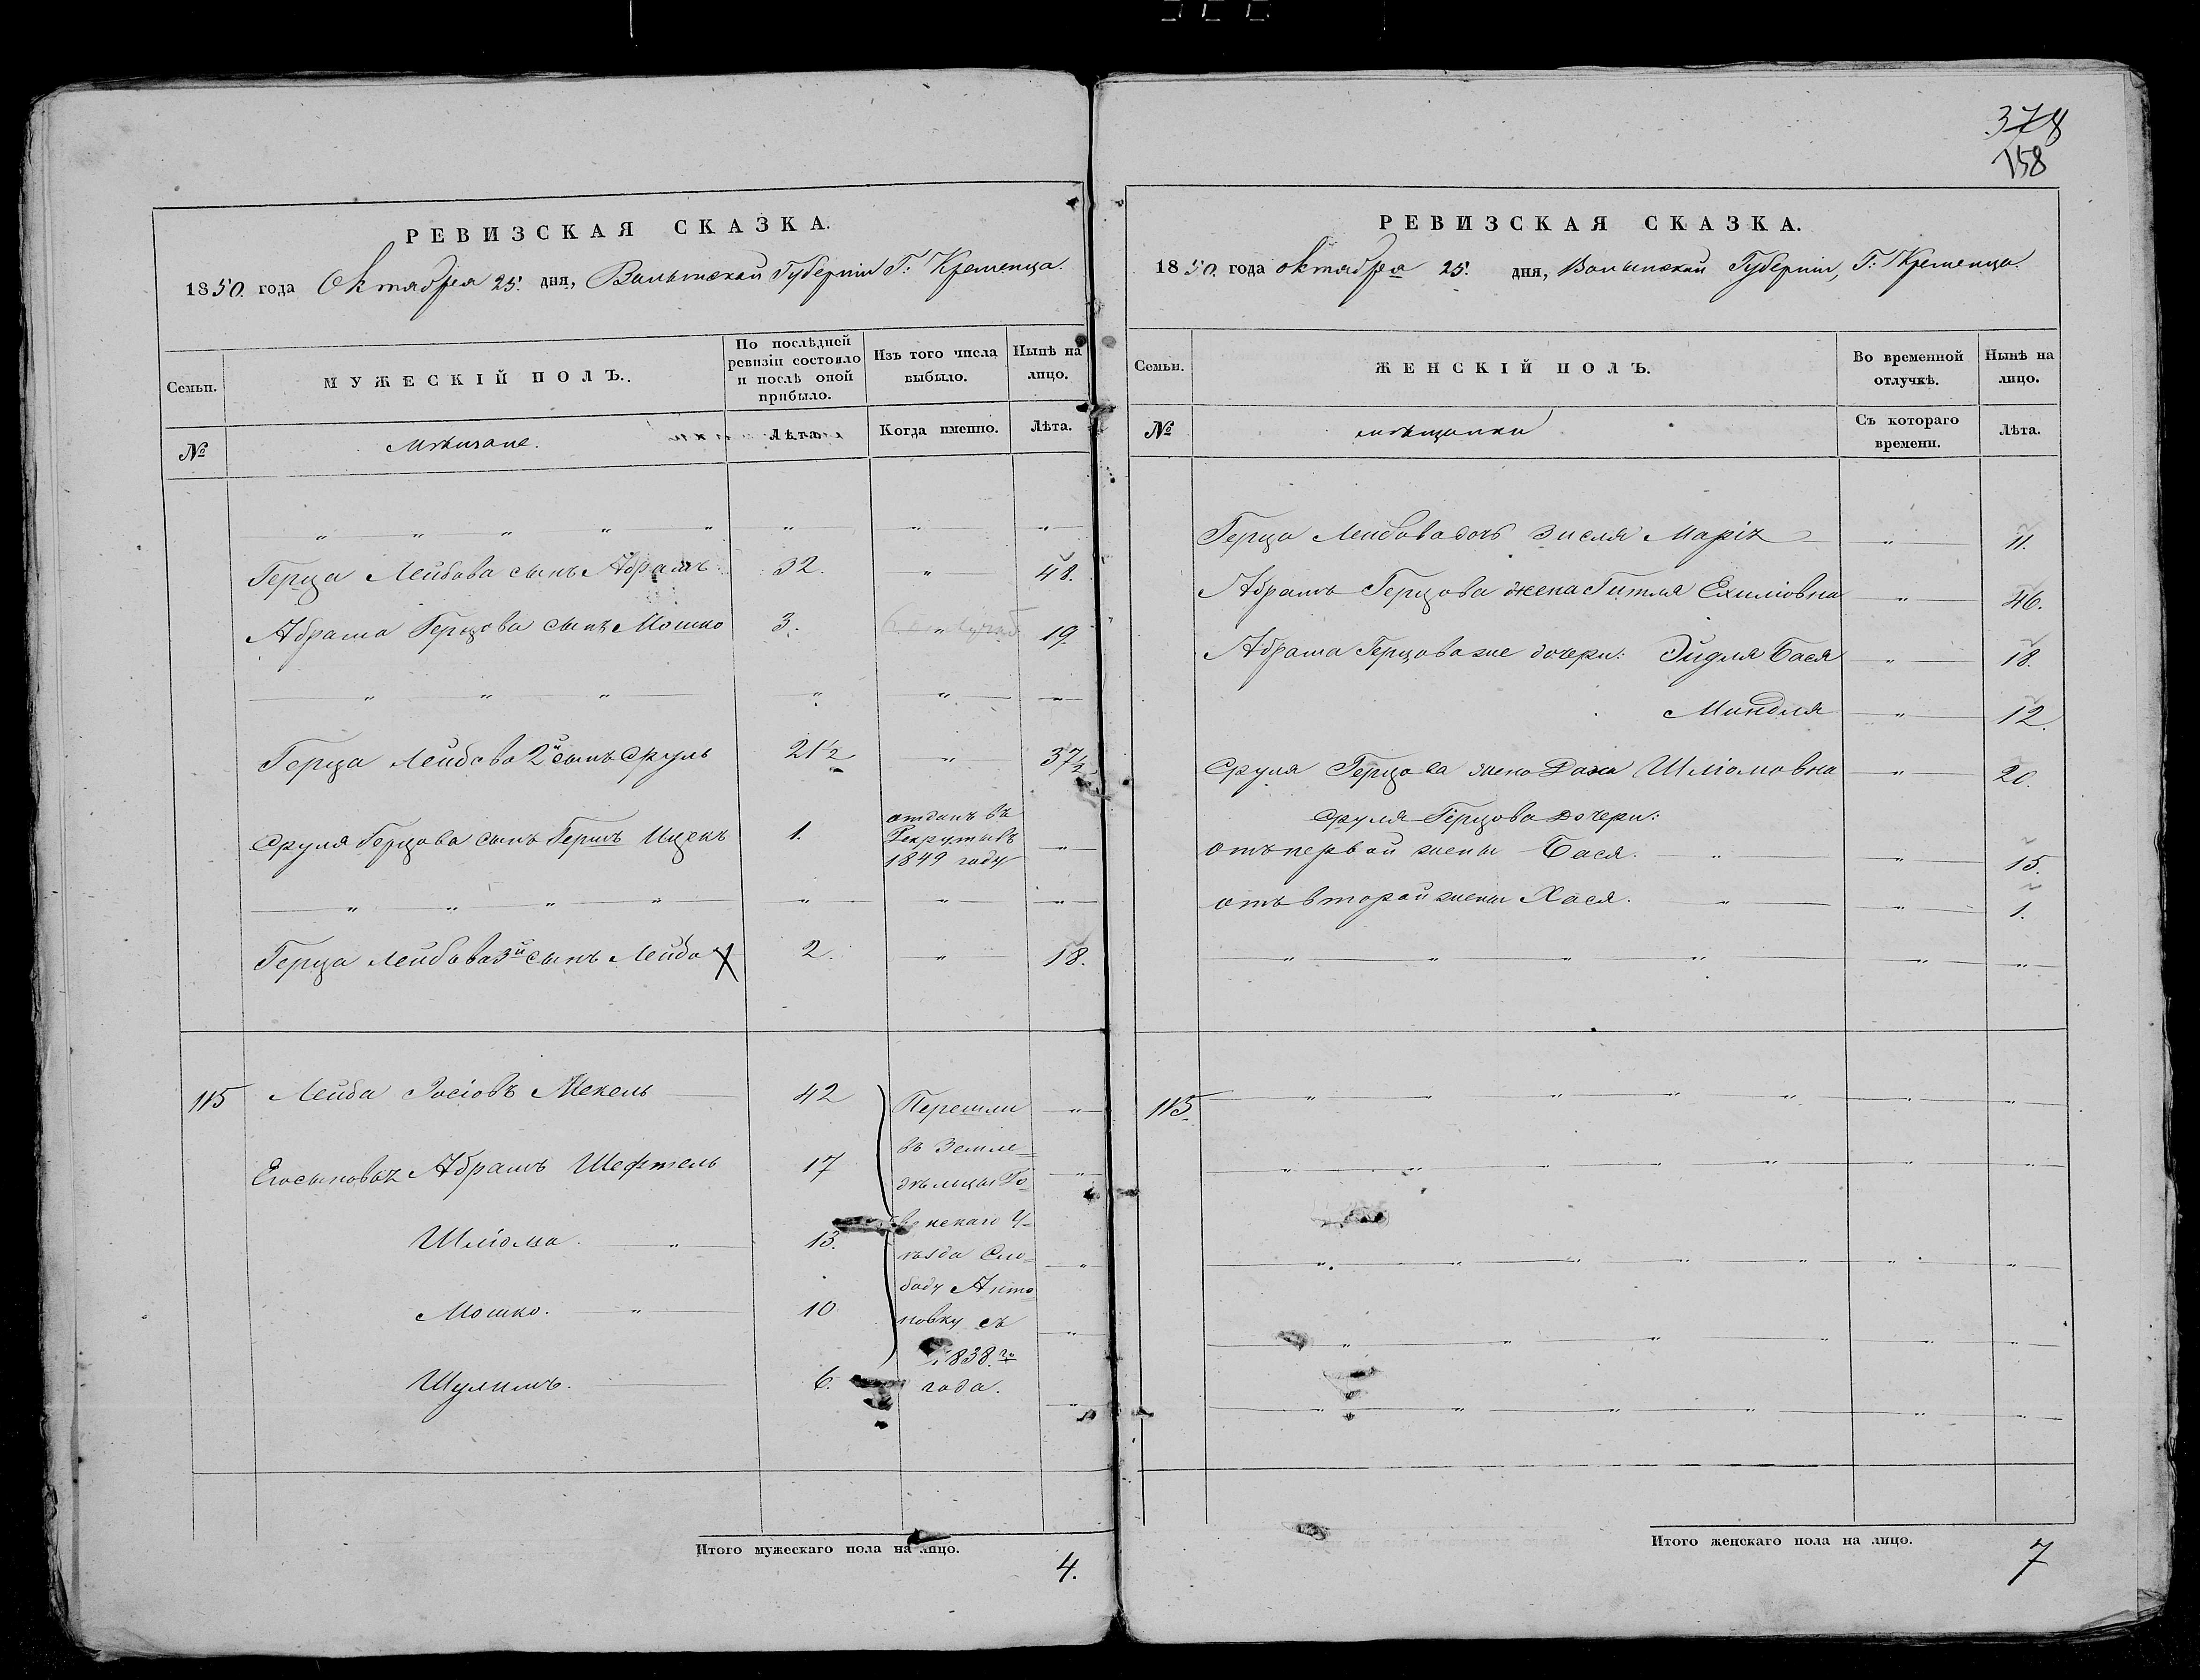 378
158
РЕВИЗСКАЯ СКАЗКА.
1850. года Октября 25. дня, Волынской Губерніи Г: Кременца.
Семьи. МУЖЕСКІЙ ПОЛЪ. По послѣдней ревизіи состояло и послѣ оной прибыло. Изъ того числа выбыло. Нынѣ на лицо.
№ Мѣщане. Лѣта. Когда именно. Лѣта.
" " " " " " " "
Герца Лейбова сынъ Абрамъ 32. " 48.
Абрама Герцова сынъ Мошко 3. " 19.
" " " " "
Герца Лейбова 2й сынъ Сруль 21½ " 37½
Сруля Герцова сынъ Гершъ Ицекъ 1. отданъ въ Рекруты въ 1849 году "
" " " " " " "
Герца Лейбова 3й сынъ Лейба X 2. " 18.
115 Лейба Іосіовъ Мекель 42 "
Его сыновья Абрамъ Шефтель 17 "
Шліома. " 13. "
Мошко. " 10 "
Шулимъ. 6. "
Перешли
въ Земле=
дѣльцы Ро=
венскаго У=
ѣзда Сло=
боду Анто
новку съ
1838.го
года.
Итого мужескаго пола на лицо. 4.
РЕВИЗСКАЯ СКАЗКА.
1850. года октября 25. дня, Волынской Губерніи, Г: Кременца.
Семьи. ЖЕНСКІЙ ПОЛЪ. Во временной отлучкѣ. Нынѣ на лицо.
№ мѣщанки Съ котораго времени. Лѣта.
Герца Лейбова дочь Зисля Маріх " 11.
Абрамъ Герцова жена Гитля Ехиліовна " 46.
Абрама Герцова же дочери: Эйдля Бася " 18.
Миндля " 12.
Сруля Герцова жена Шліомовна " 20.
Сруля Герцова дочери:
отъ первой жены Бася. " " 15.
отъ второй жены Хася. " " 1.
" " " " " "
115. " " " " " "
" " " " " "
" " " " " "
" " " " " "
" " " " " "
Итого женскаго пола на лицо. 7